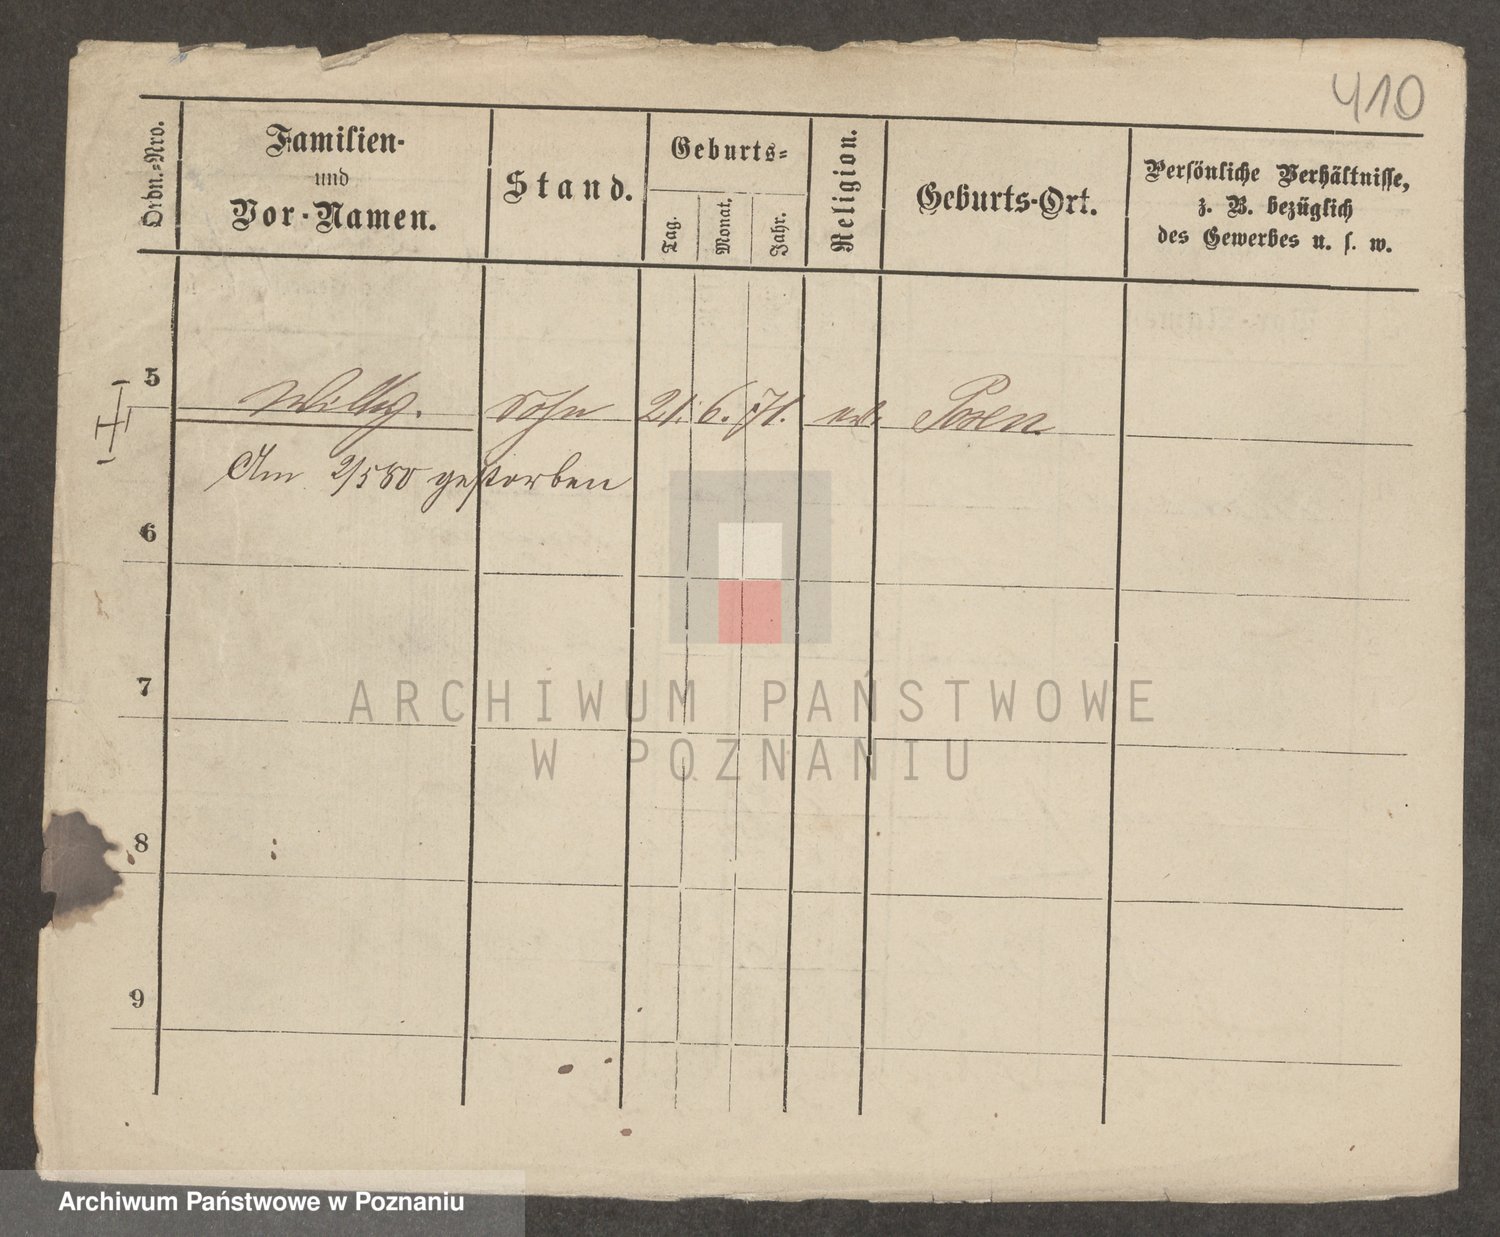 410
Ordn.-Nro.
Familien-
und
Vor-Namen.
Stand.
Geburts-
Tag.
Monat.
Jahr.
Religion.
Geburts-Ort.
Persönliche Verhältnisse,
z. B. bezüglich
des Gewerbes u. s. w.
5 Willy. Sohn 21. 6. 71. Posen
Am 2/5 80 gestorben
6
7
8
9
ARCHIWUM PAŃSTWOWE
W POZNANIU
Archiwum Państwowe w Poznaniu